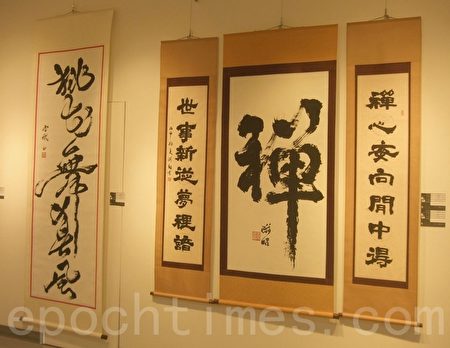 禪心安向閒中得
禪
世事新從夢裡諳
桃花舞春風
epochtimes.com